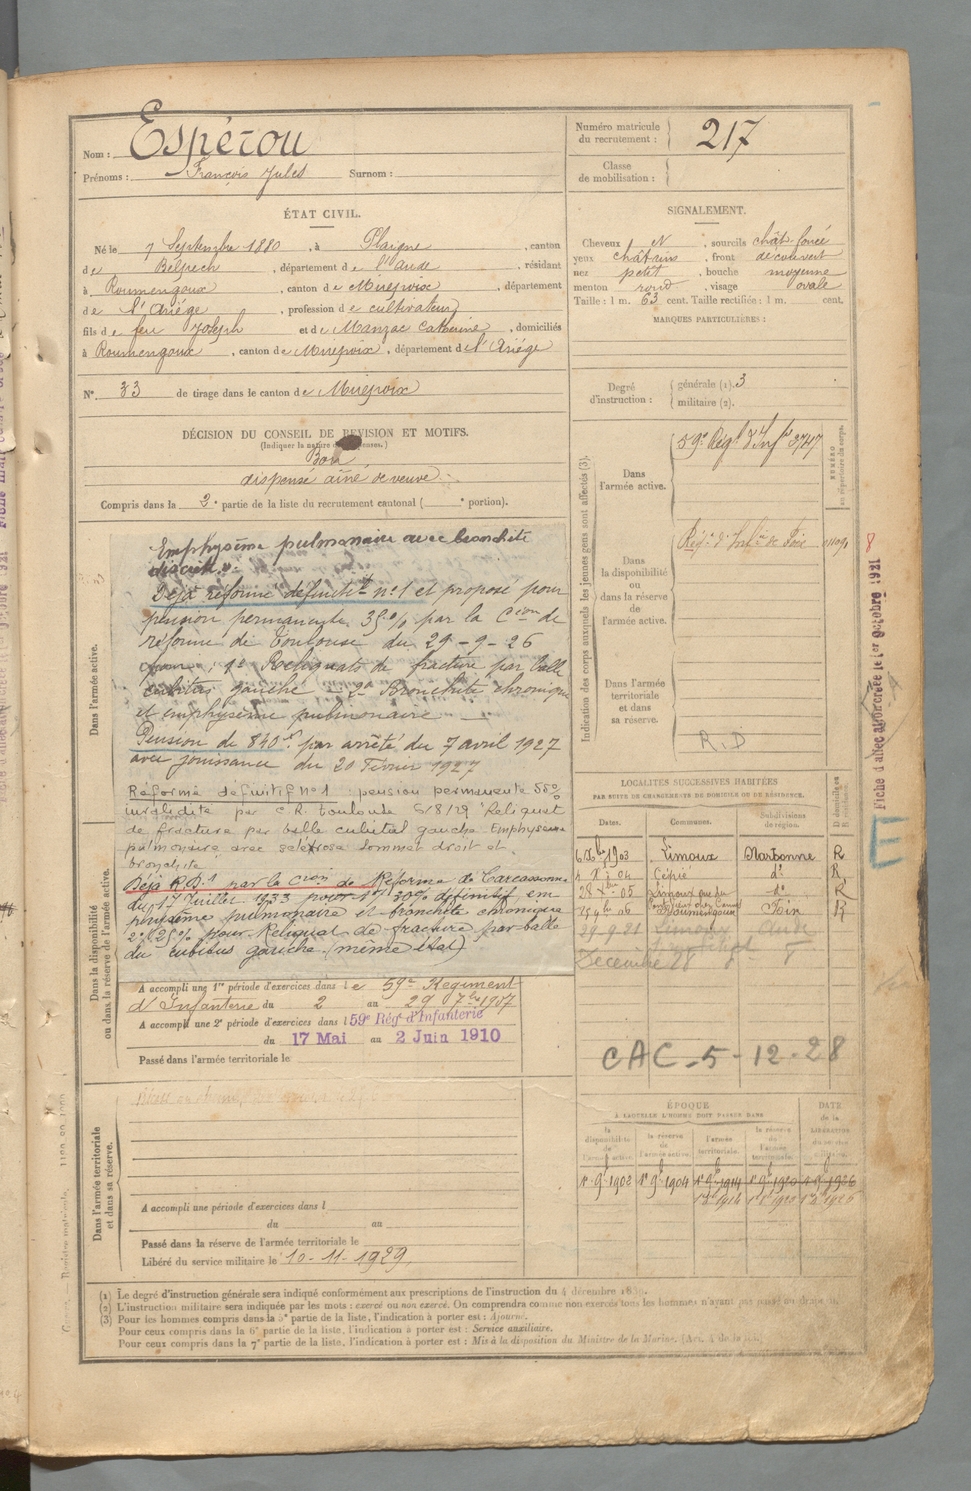 Nom : Espérou
Prénoms : François Jules Surnom :
Numéro matricule du recrutement : 217
Classe de mobilisation :
ÉTAT CIVIL.
Né le 7 Septembre 1880, à Plaigne, canton
de Belpech, département de l'Aude, résidant
à Roumengoux, canton de Mirepoix, département
de l'Ariège, profession de cultivateur
fils de feu Joseph et de Manzac Catherine, domiciliés
à Roumengoux, canton de Mirepoix, département de l'Ariège
N° 33 de tirage dans le canton de Mirepoix
SIGNALEMENT.
Cheveux N, sourcils chât. foncé
yeux châtains, front découvert
nez petit, bouche moyenne
menton rond, visage ovale
Taille : 1 m. 63 cent. Taille rectifiée : 1 m. cent.
MARQUES PARTICULIÈRES :
Degré d'instruction : générale (1). 3
militaire (2).
DÉCISION DU CONSEIL DE REVISION ET MOTIFS.
(Indiquer la nature des causes.)
Bon
dispensé aîné de veuve
Compris dans la 2e partie de la liste du recrutement cantonal ( e portion).
Indication des corps auxquels les jeunes gens sont affectés (3).
NUMÉRO au répertoire du corps.
Dans l'armée active.
59e Régt d'Infie 3747
Dans la disponibilité ou dans la réserve de l'armée active.
Régt d'Infie de Foix
Dans l'armée territoriale et dans sa réserve.
R.D
Dans l'armée active.
Emphysème pulmonaire avec bronchite
discrète.
Déjà réformé définitif n°1 et proposé pour
pension permanente 35% par la Cion de
réforme de Toulouse du 29-9-26
pour 1° Reliquats de fracture par balle
cubitus gauche - 2° Bronchite chronique
et emphysème pulmonaire
Pension de 840f par arrêté du 7 avril 1927
avec jouissance du 20 Février 1927
Réformé définitif n°1 pension permanente 55%
invalidité par C.R. Toulouse 5/8/29 Reliquat
de fracture par balle cubital gauche Emphysème
pulmonaire avec sclérose sommet droit et
bronchite
Déjà R.D.1 par la Cion de Réforme de Carcassonne
du 17 Juillet 1933 pour 1° 30% définitif em
physème pulmonaire et bronchite chronique
2° 25% pour Reliquat de fracture par balle
du cubitus gauche (même état)
Dans la disponibilité ou dans la réserve de l'armée active.
A accompli une 1re période d'exercices dans le 59e Régiment
d'Infanterie du 2 au 29 7bre 1907
A accompli une 2e période d'exercices dans l 59e Régt d'Infanterie
du 17 Mai au 2 Juin 1910
Passé dans l'armée territoriale le
LOCALITÉS SUCCESSIVES HABITÉES
PAR SUITE DE CHANGEMENTS DE DOMICILE OU DE RÉSIDENCE.
Dates. Communes. Subdivisions de région. D domicile ou R résidence.
6 Xbre 1903 Limoux Narbonne R
Cépie d° R
28 Xbre 05 d° R
25 9bre 06 Roumengoux Foix R
29-9-21 Limoux Aude
Décembre 28
CAC-5-12-28
ÉPOQUE
À LAQUELLE L'HOMME DOIT PASSER DANS
DATE de la LIBÉRATION du service militaire.
la disponibilité de l'armée active. la réserve de l'armée active. l'armée territoriale. la réserve de l'armée territoriale.
1er 9bre 1902 1er 9bre 1904 1er 9bre 1914 1er 9bre 1920 1er 9bre 1926
Dans l'armée territoriale et dans sa réserve.
A accompli une période d'exercices dans l
du au
Passé dans la réserve de l'armée territoriale le
Libéré du service militaire le 10-11-1929.
(1) Le degré d'instruction générale sera indiqué conformément aux prescriptions de l'instruction du 4 décembre
(2) L'instruction militaire sera indiquée par les mots : exercé ou non exercé. On comprendra comme non exercés tous les hommes n'ayant pas
(3) Pour les hommes compris dans la 5e partie de la liste, l'indication à porter est : Ajourné.
Pour ceux compris dans la 6e partie de la liste, l'indication à porter est : Service auxiliaire.
Pour ceux compris dans la 7e partie de la liste, l'indication à porter est : Mis à la disposition du Ministre de la Marine.
Fiche d'affectation créée le 1er Octobre 1921
E